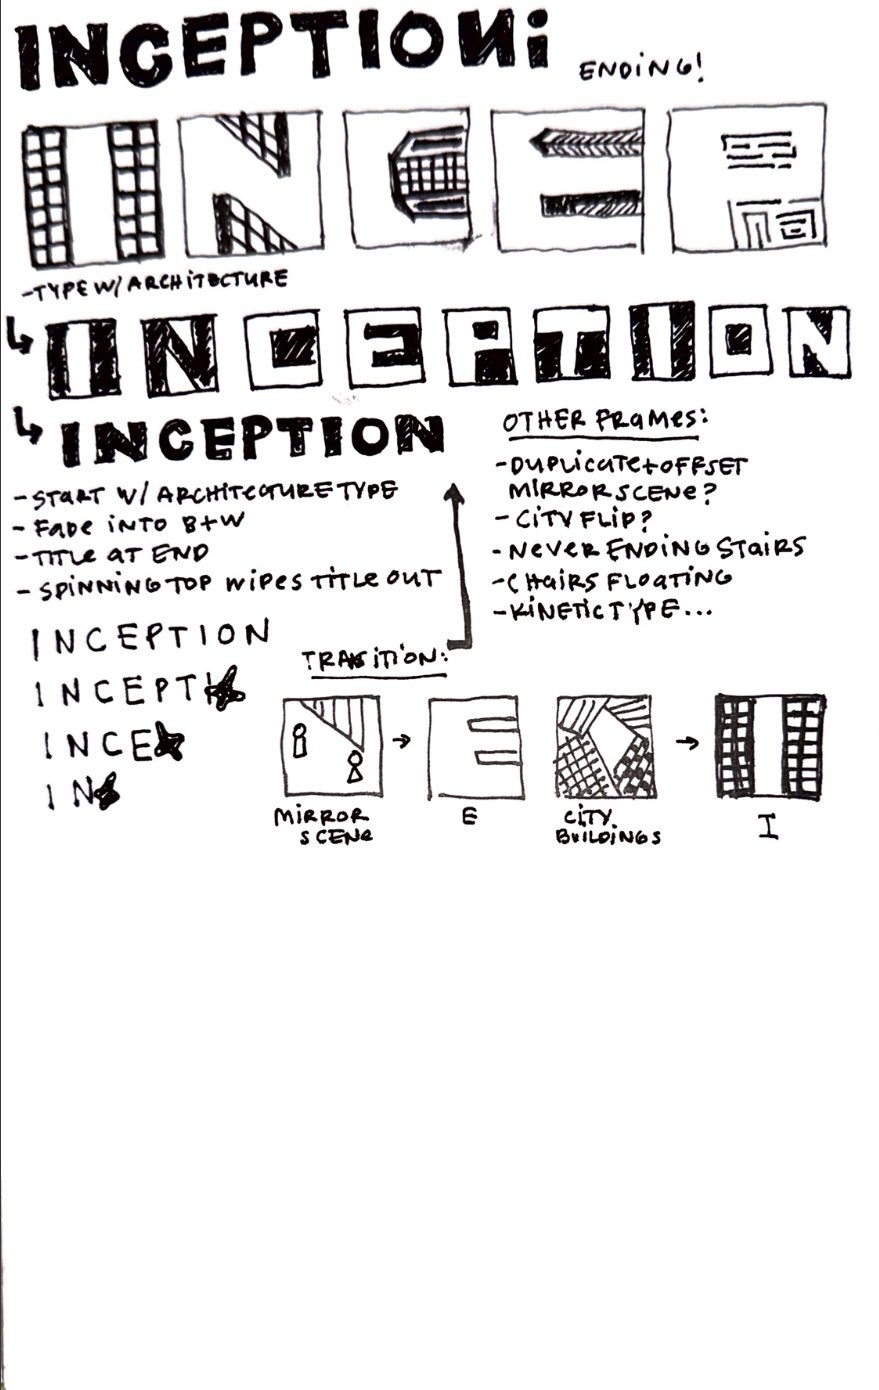 INCEPTION:
ENDING!
INCEP
-TYPE W/ ARCHITECTURE
INCEPTION
INCEPTION
- START W/ ARCHITECTURE TYPE
- FADE INTO B+W
- TITLE AT END
- SPINNING TOP WIPES TITLE OUT
INCEPTION
INCEPTI
INCE
IN
OTHER FRAMES:
- DUPLICATE + OFFSET
MIRROR SCENE?
- CITY FLIP?
- NEVER ENDING STAIRS
- CHAIRS FLOATING
- KINETIC TYPE...
TRASITION:
MIRROR
SCENE
E
CITY
BUILDINGS
I